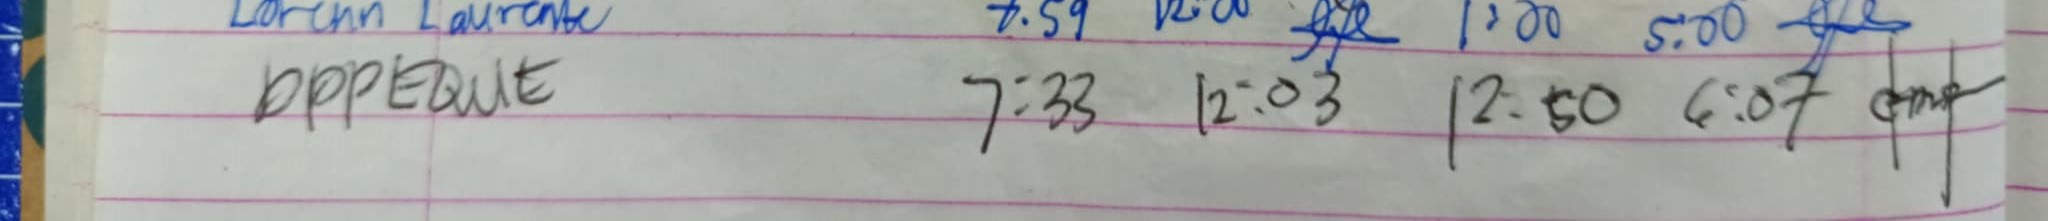 Lorenn Laurente 7:59 12:00 1:00 5:00
DPPEQUE 7:33 12:03 12:50 6:07